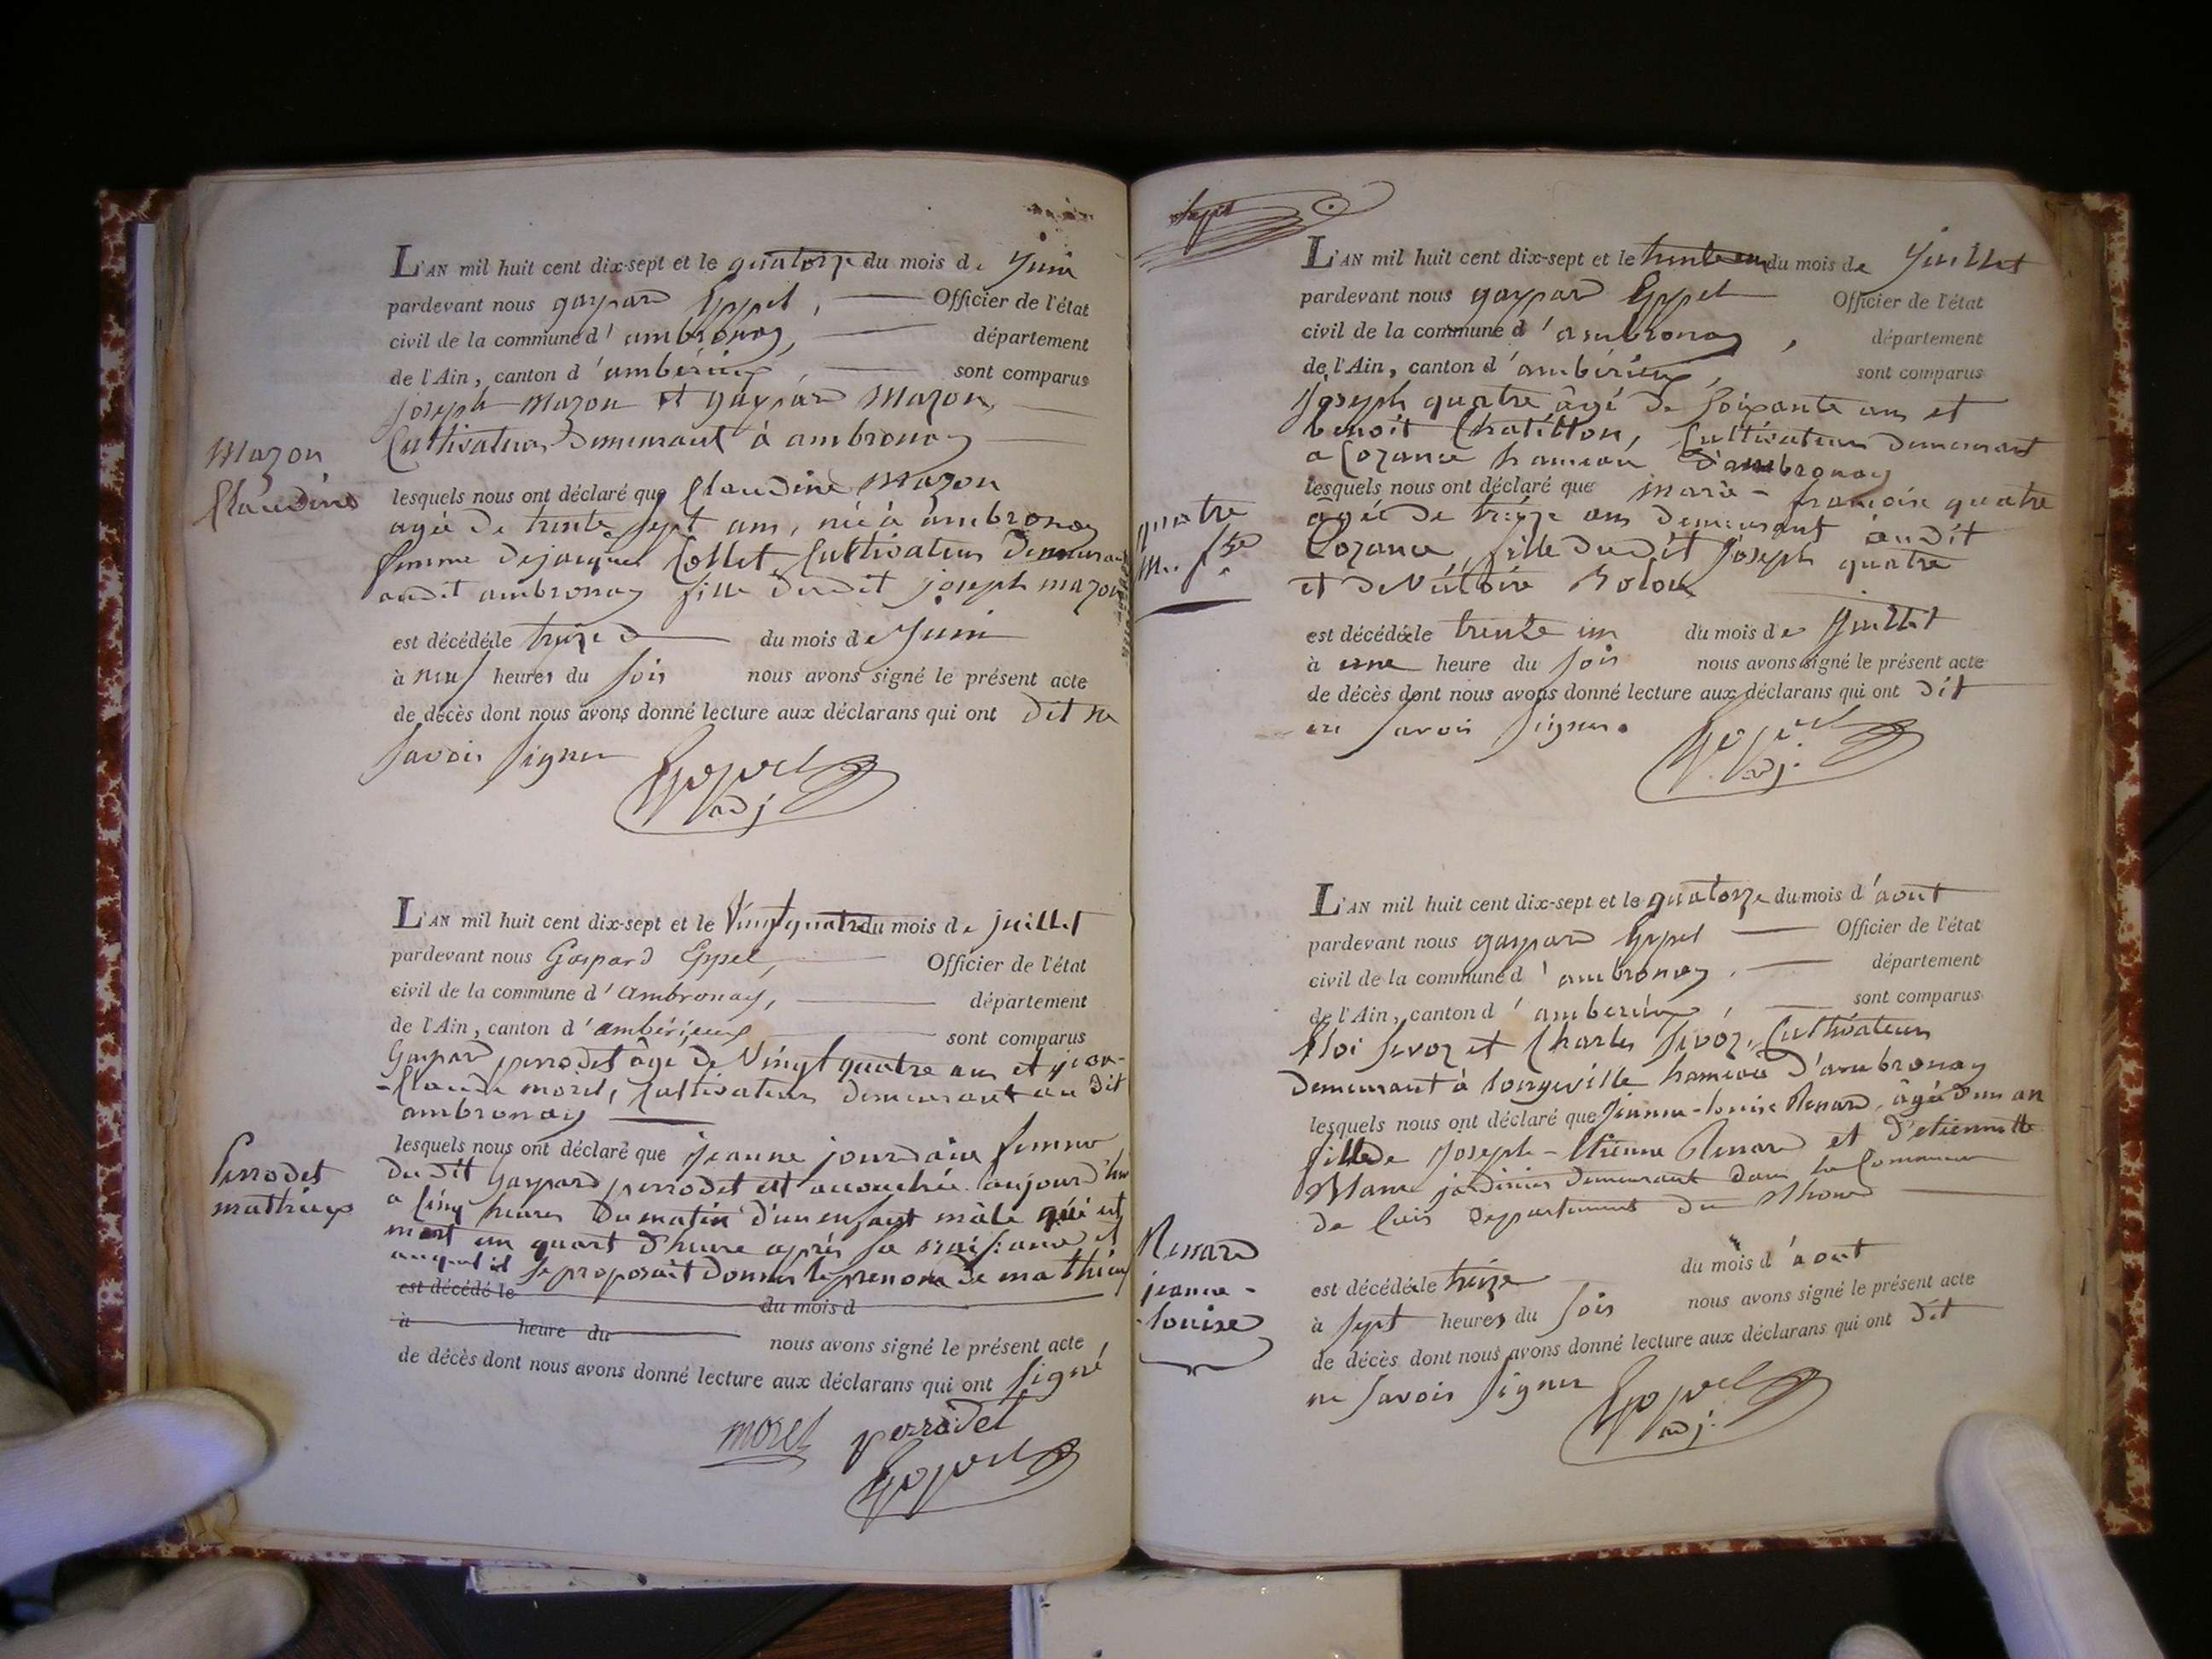 L'AN mil huit cent dix-sept et le quatorze du mois de Juin
pardevant nous gaspard Eppel, Officier de l'état
civil de la commune d'ambronay, département
de l'Ain, canton d'ambérieux, sont comparus
joseph Mazon et gaspard Mazon,
Cultivateurs demeurant à ambronay
Mazon
Claudine
lesquels nous ont déclaré que Claudine Mazon
agée de trente sept ans, née à ambronay
femme de jacques Collet, Cultivateur demeurant
audit ambronay fille dudit joseph mazon
est décédée le treize du mois de Juin
à neuf heures du soir nous avons signé le présent acte
de décès dont nous avons donné lecture aux déclarans qui ont dit ne
savoir signer
Eppel
adj
L'AN mil huit cent dix-sept et le Vingt quatre du mois de juillet
pardevant nous Gaspard Eppel, Officier de l'état
civil de la commune d'ambronay, département
de l'Ain, canton d'ambérieux sont comparus
Gaspard perrodet âgé de Vingt quatre ans et jean-
-Claude morel, Cultivateurs demeurant au dit
ambronay
Perrodet
mathieux
lesquels nous ont déclaré que jeanne jourdain femme
du dit Gaspard perrodet est accouchée aujourd'hui
a Cinq heures du matin d'un enfant mâle qui est
mort un quart d'heure après sa naissance et
auquel il se proposait donner le prenom de mathieu
est décédé le du mois d
à heure du nous avons signé le présent acte
de décès dont nous avons donné lecture aux déclarans qui ont signé
morel perrodet
Eppel
sept
L'AN mil huit cent dix-sept et le trente un du mois de Juillet
pardevant nous gaspard Eppel Officier de l'état
civil de la commune d'ambronay, département
de l'Ain, canton d'ambérieux, sont comparus
Joseph quatre âgé de soixante ans et
benoit Chatillon, Cultivateurs demeurant
a Cozance hameau d'ambronay
quatre
m. fse
lesquels nous ont déclaré que marie-francoise quatre
agée de treize ans demeurant audit
Cozance, fille dudit Joseph quatre
et de Bolon
est décédée le trente un du mois de Juillet
à une heure du soir nous avons signé le présent acte
de décès dont nous avons donné lecture aux déclarans qui ont dit
ne savoir signer.
Eppel
adj.
L'AN mil huit cent dix-sept et le quatorze du mois d'aout
pardevant nous gaspard Eppel Officier de l'état
civil de la commune d'ambronay. département
de l'Ain, canton d'amberieux, sont comparus
Eloi et Charles Cultivateurs
demeurant à longeville hameau d'ambronay
lesquels nous ont déclaré que Jeanne-louise Renard, âgée d'un an
fille de Joseph-Etienne Renard et d'etiennette
Blanc jardinier demeurant dans la Commune
de Cuis département du Rhone
Renard
jeanne-
louise
est décédée le treize du mois d'aout
à sept heures du soir nous avons signé le présent acte
de décès dont nous avons donné lecture aux déclarans qui ont dit
ne savoir signer
Eppel
adj.